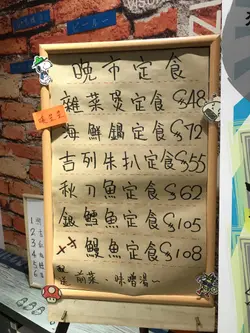 晚市定食
雜菜煲定食 $48
海鮮鍋定食 $72
吉列朱扒定食 $55
秋刀魚定食 $62
銀鱈魚定食 $105
鰻魚定食 $108
前菜、味噌湯